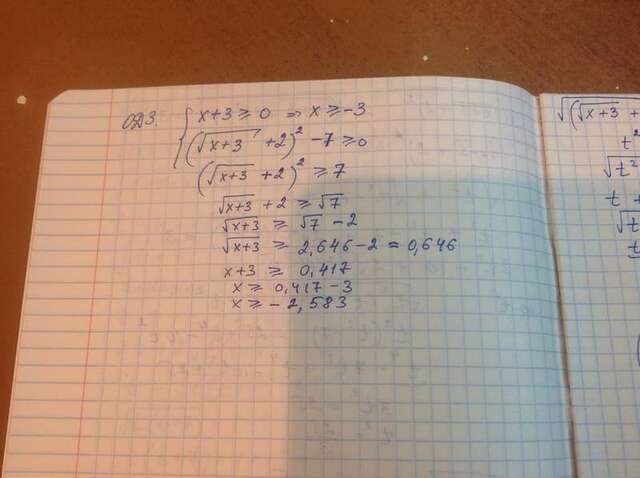 ОДЗ. { x+3 ≥ 0 ⇒ x ≥ -3
(√(x+3) +2)² - 7 ≥ 0
(√(x+3) +2)² ≥ 7
√(x+3) + 2 ≥ √7
√(x+3) ≥ √7 - 2
√(x+3) ≥ 2,646-2 = 0,646
x+3 ≥ 0,417
x ≥ 0,417-3
x ≥ -2,583
√((√(x+3) +
t²
√t²
t +
√t
t